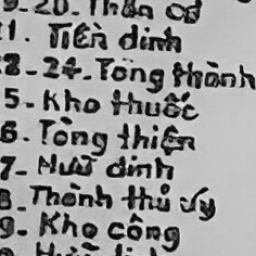 9-20-Thần cơ
1. Tiền dinh
2-24-Tòng thành
5-Kho thuốc
6-Tòng thiện
7-Hưũ dinh
8-Thành thủ úy
9-Kho công